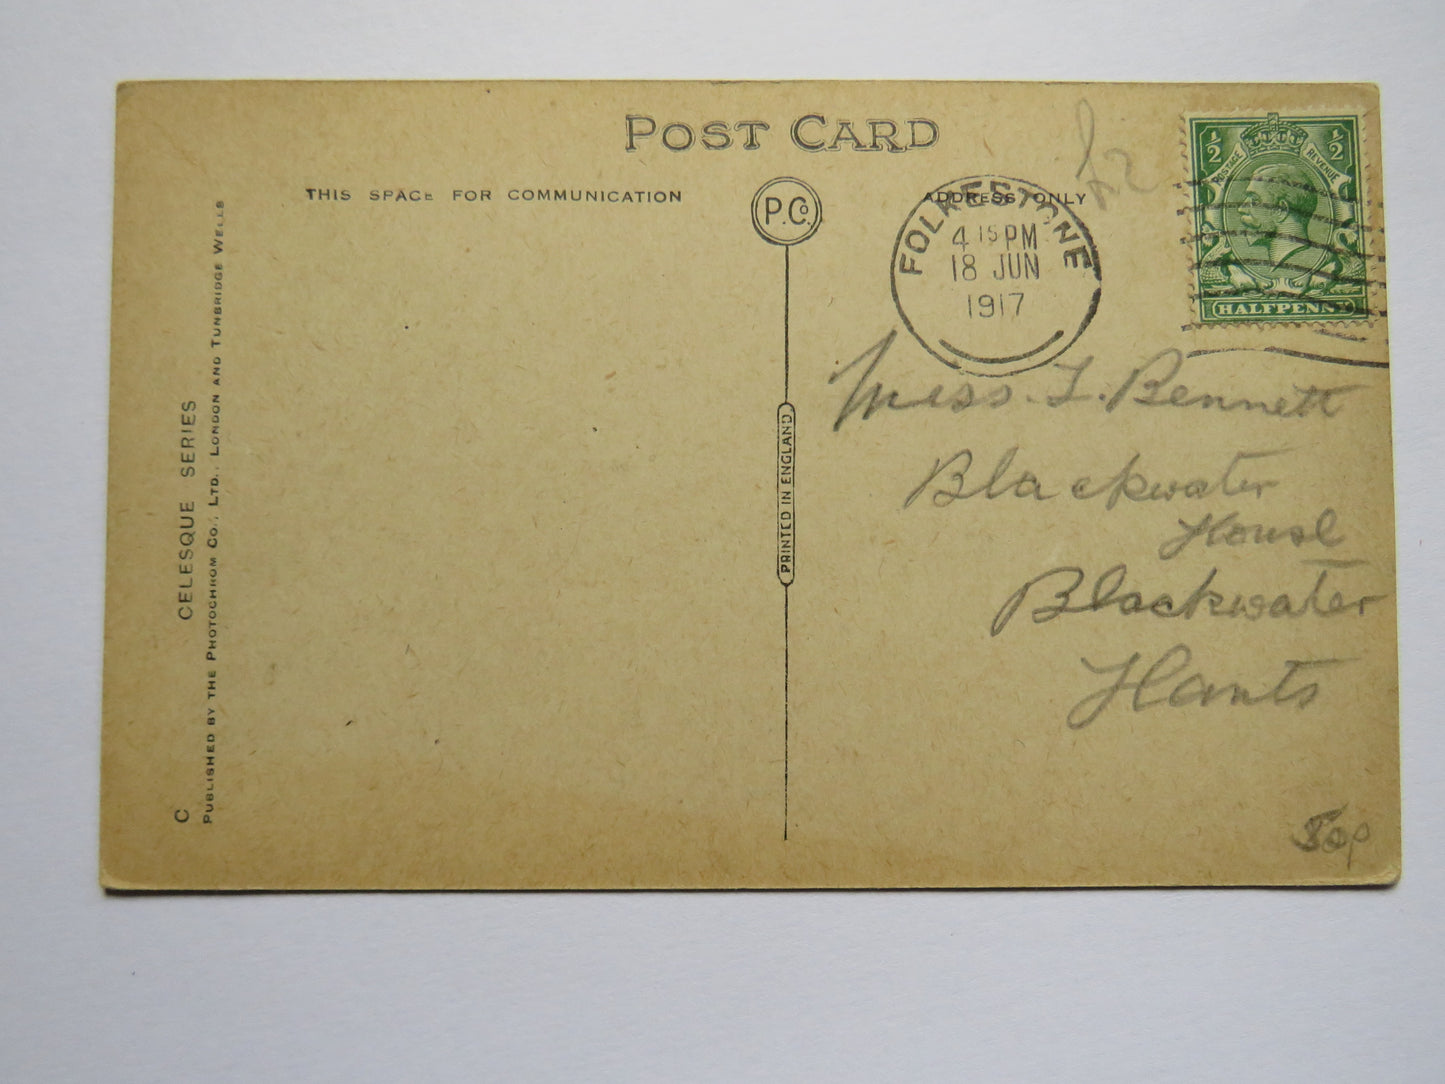 POST CARD
THIS SPACE FOR COMMUNICATION
P.Co.
ADDRESS ONLY
£2
FOLKESTONE
4 15 PM
18 JUN
1917
½ ½
POSTAGE REVENUE
HALFPENNY
Miss. L. Bennett
Blackwater
House
Blackwater
Hants
50p
PRINTED IN ENGLAND
C CELESQUE SERIES
PUBLISHED BY THE PHOTOCHROM CO., LTD., LONDON AND TUNBRIDGE WELLS